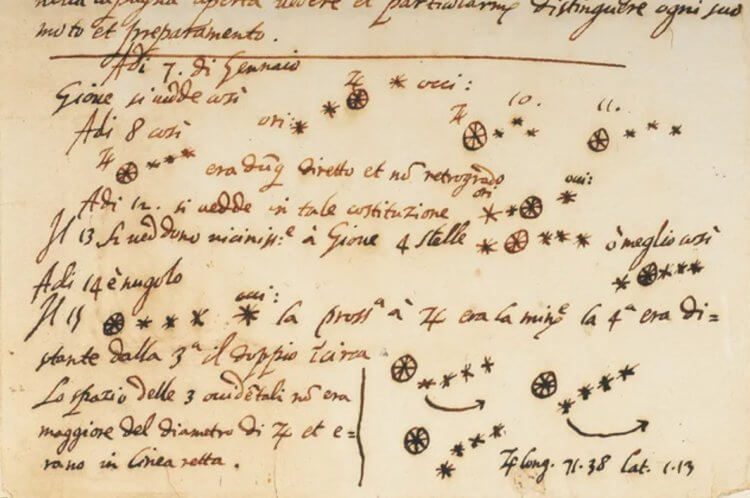 aperta vedere et distinguere ogni suo
moto et preparamento.
Adi 7. di Gennaio
Gioue si uedde cosi ori: ♃ occi:
Adi 8 cosi ♃ 10. 11.
♃ era dũq diretto et nõ retrogrado
Adi 12. si uedde in tale costituzione ori: occi:
Il 13 si ueddono uiciniss.e à Gioue 4 stelle ò meglio cosi
Adi 14 è nugolo
Il 15 occi: la pross.a à ♃ era la min.e la 4.a era di=
stante dalla 3.a il doppio ĩcirca
Lo spazio delle 3 occidẽtali nõ era
maggiore del diametro di ♃ et e-
rano in linea retta.
♃ long. 71.38 lat. 1.13